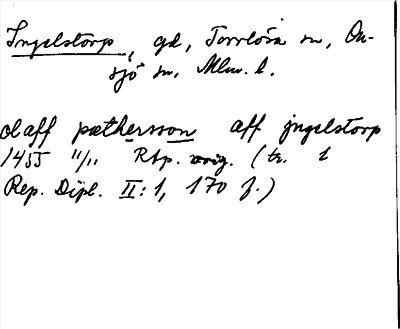 Ingelstorp, gd, Torrlösa sn, On-
sjö sn. Mlm. l.
olaff pæthersson aff jngelstorp
1455 11/11 Rtp. orig. (tr. i
Rep. Dipl. II:1, 170 f.)